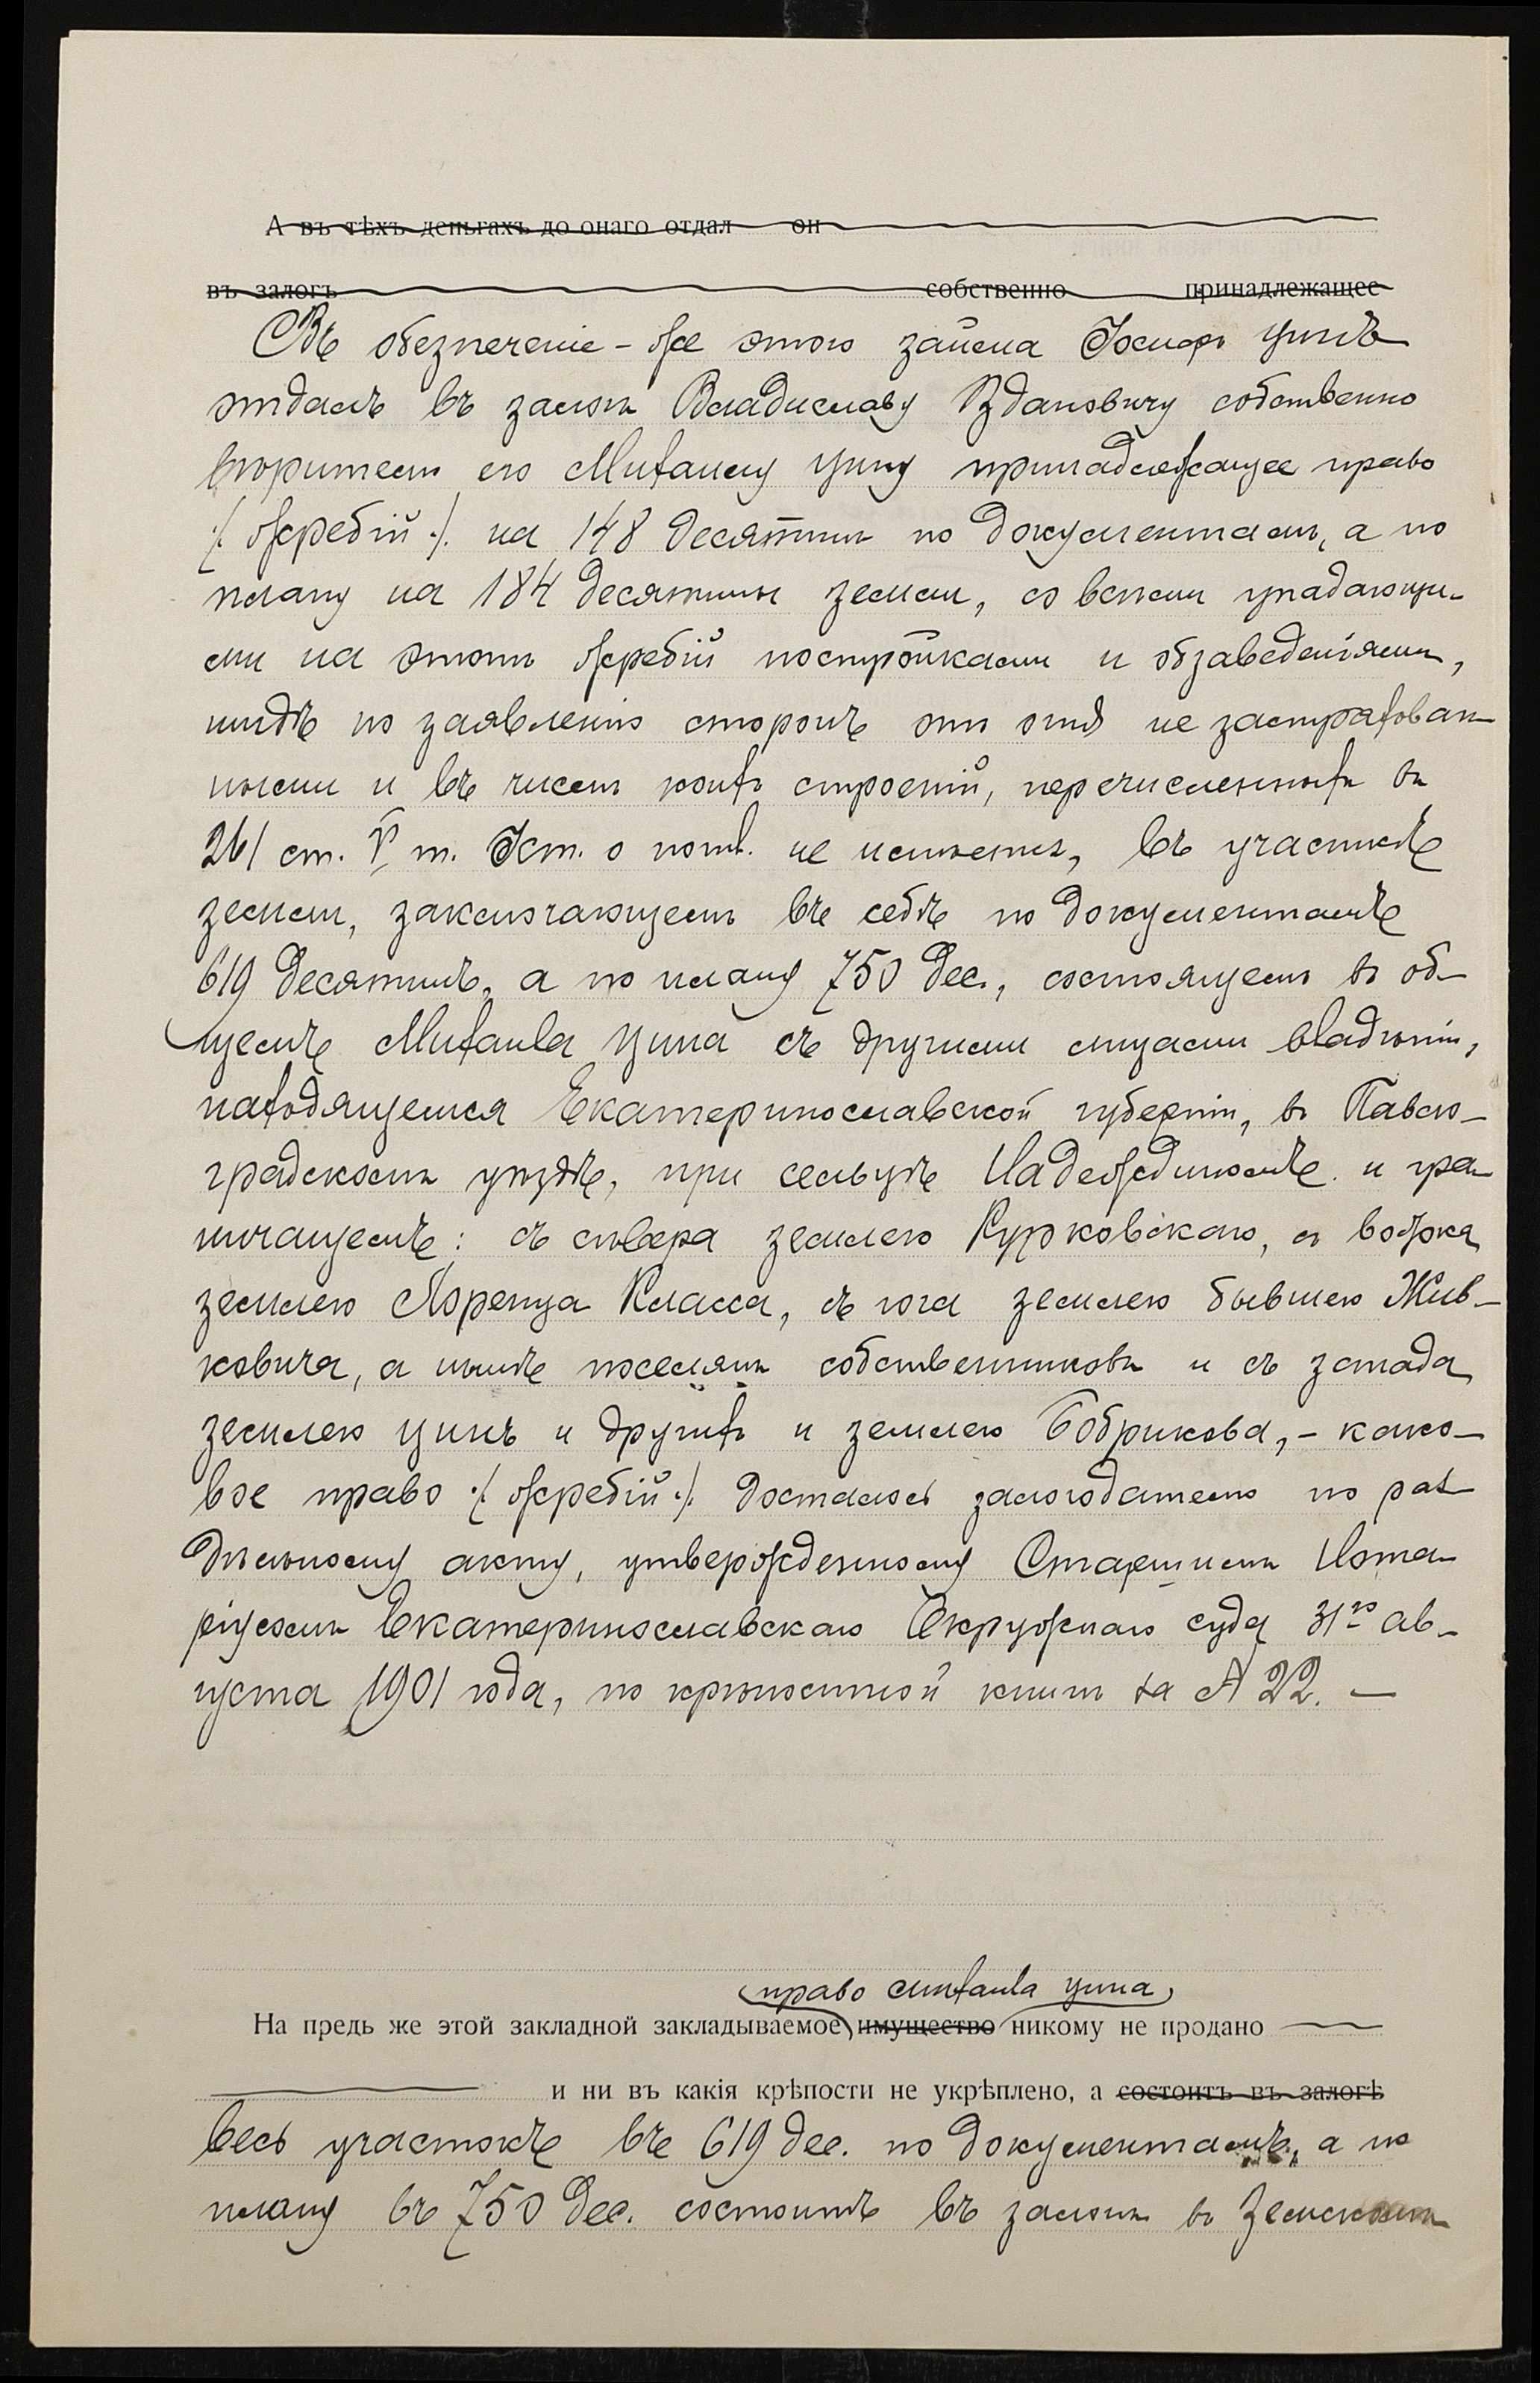 А въ тѣхъ деньгахъ до онаго отдал он
въ залогъ собственно принадлежащее
Въ обезпеченіе-же этого займа Іосифъ Цинъ
отдалъ въ залогъ Владиславу Здановичу собственно
вѣрителю его Михаилу Цину принадлежащее право
/жребій/ на 148 десятинъ по документамъ, а по
плану на 184 десятины земли, со всѣми упадающи-
ми на этотъ жребій постройками и обзаведеніями,
нигдѣ по заявленію сторонъ отъ огня не застрахован-
ными и въ числѣ коихъ строеній, перечисленныхъ въ
261 ст. V т. Уст. о не имѣется, въ участкѣ
земли, заключающемъ въ себѣ по документамъ
619 десятинъ, а по плану 750 дес., состоящемъ въ об-
щемъ Михаила Цина съ другими лицами владѣніи,
находящемся Екатеринославской губерніи, въ Павло-
градскомъ уѣздѣ, при сельцѣ Надеждиномъ и гра-
ничащемъ: съ сѣвера землею Курковскаго, съ востока
землею Лоренца Класса, съ юга землею бывшею Жив-
ковича, а нынѣ поселянъ собственниковъ и съ запада
землею Цинъ и другихъ и землею Бобрикова, - како-
вое право /жребій/ досталось залогодателю по раз-
дѣльному акту, утвержденному Старшимъ Нота-
ріусомъ Екатеринославскаго Окружнаго суда 31го ав-
густа 1901 года, по крѣпостной книгѣ за № 22. —
право Михаила Цина
На предь же этой закладной закладываемое имущество никому не продано
и ни въ какія крѣпости не укрѣплено, а состоитъ въ залогѣ
весь участокъ въ 619 дес. по документамъ, а по
плану въ 750 дес. состоитъ въ залогѣ въ Земскомъ